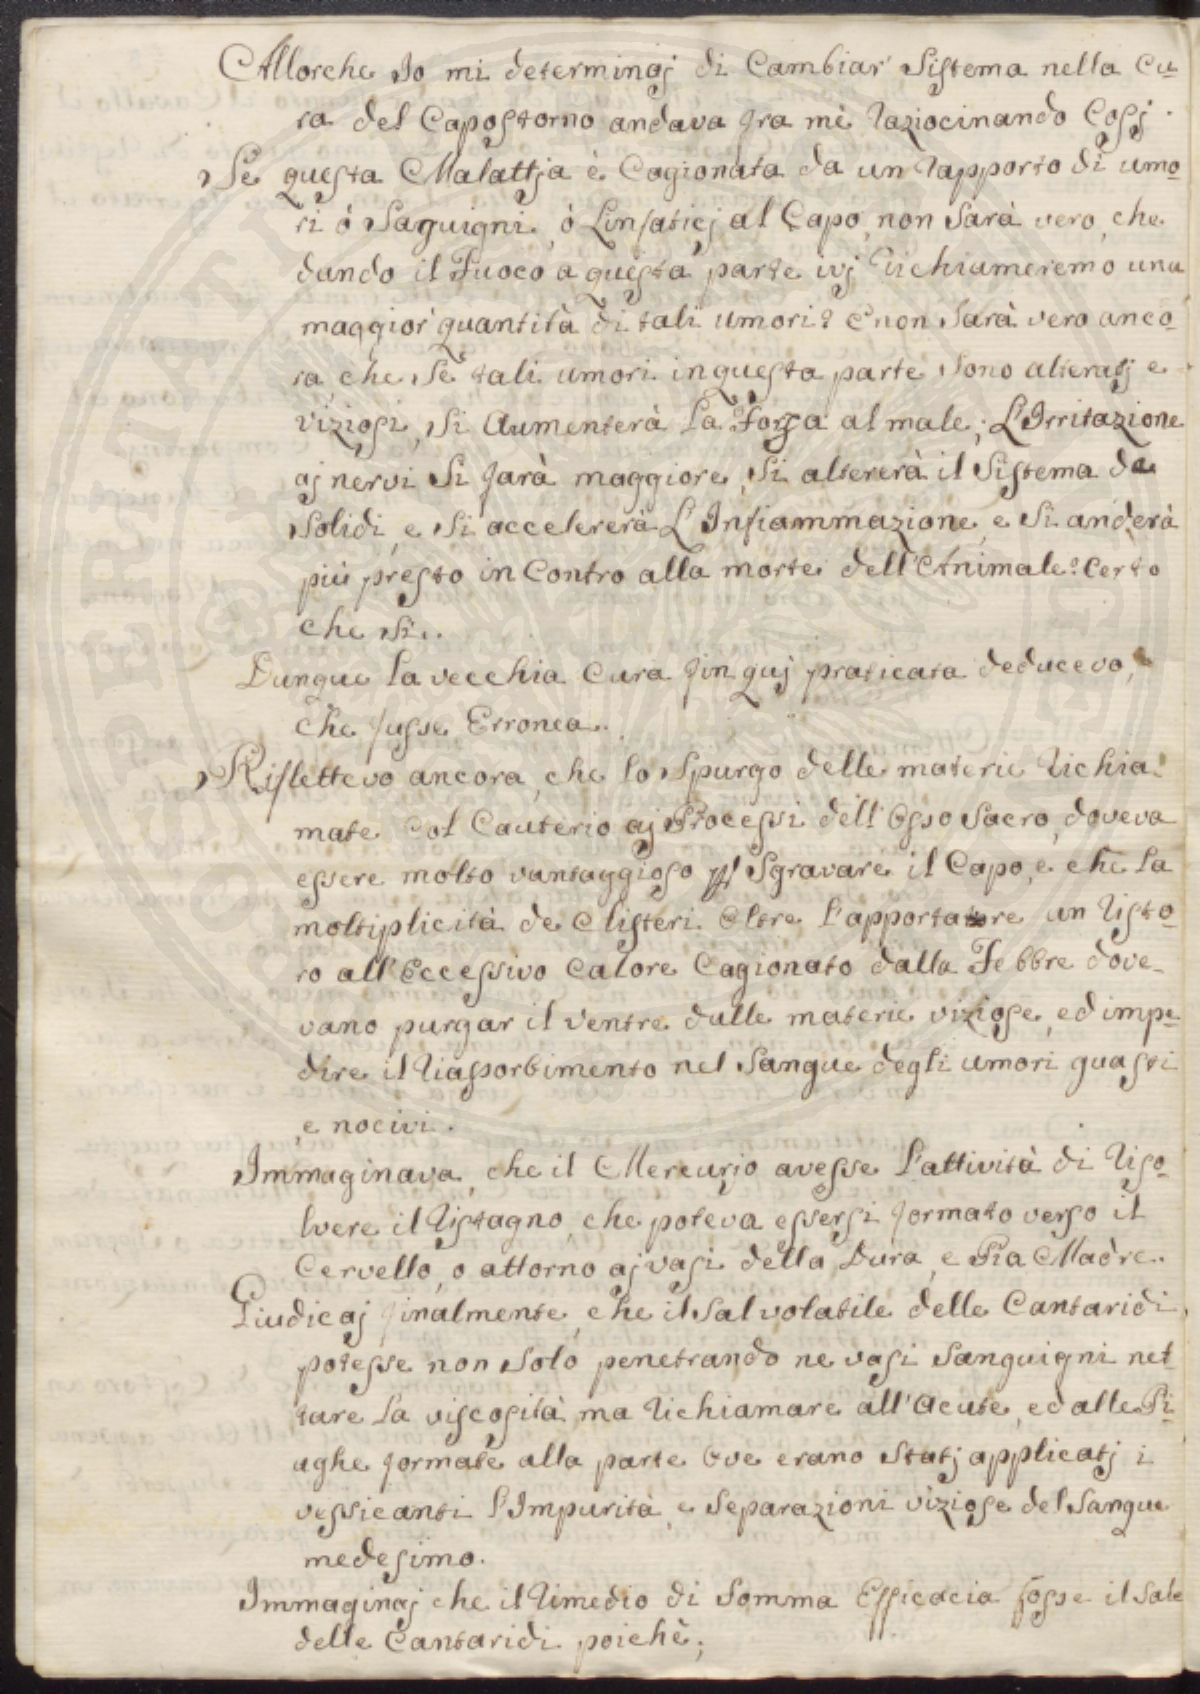 Allorche Io mi determinaj di Cambiar Sistema nella Cu-
ra del Capostorno andava fra mè raziocinando Cosj.
Se questa Malattja è Cagionata da un rapporto di umo-
ri ó Saguigni, ó Linfaticj al Capo, non Sarà vero, che
dando il Fuoco a questa parte ivj richiameremo una
maggior quantità di tali umori? E non Sarà vero anco-
ra che Se tali umori in questa parte Sono alteratj e
viziosi, Si Aumenterà La Forza al male; L'Irritazione
aj nervi Si farà maggiore, Si altererà il Sistema de
Solidi, e Si accelererà L'Infiammazione, e Si anderà
più presto in Contro alla morte dell'Animale? Certo
che Si.
Dunque la vecchia Cura fin quj praticata deducevo,
che fusse Erronea.
Riflettevo ancora, che lo Spurgo delle materie richia-
mate Col Cauterio aj Processi dell'Osso Sacro, doveva
essere molto vantaggioso p Sgravare il Capo, e che La
moltiplicità de Clisteri Oltre l'apportare un risto-
ro all'Eccessivo Calore Cagionato dalla Febbre dove-
vano purgar il Ventre dalle materie viziose, ed impe-
dire il riassorbimento nel Sangue degli umori guasti
e nocivi.
Immaginava, che il Mercurio avesse l'attività di riso-
lvere il ristagno, che poteva essersi formato verso il
Cervello, o attorno aj vasi della Dura, e Pia Madre.
Giudicaj finalmente, che il Sal volatile delle Cantaridi
potesse non Solo penetrando ne vasi Sanguigni net-
tare La viscosità, ma richiamare all'Acute, ed alle Pi-
aghe formate alla parte Ove erano Statj applicatj i
vessicanti l'Impurità, e Separazioni viziose del Sangue
medesimo.
Immaginaj che il rimedio di Somma Efficacia fosse il Sale
delle Cantaridi poichè;